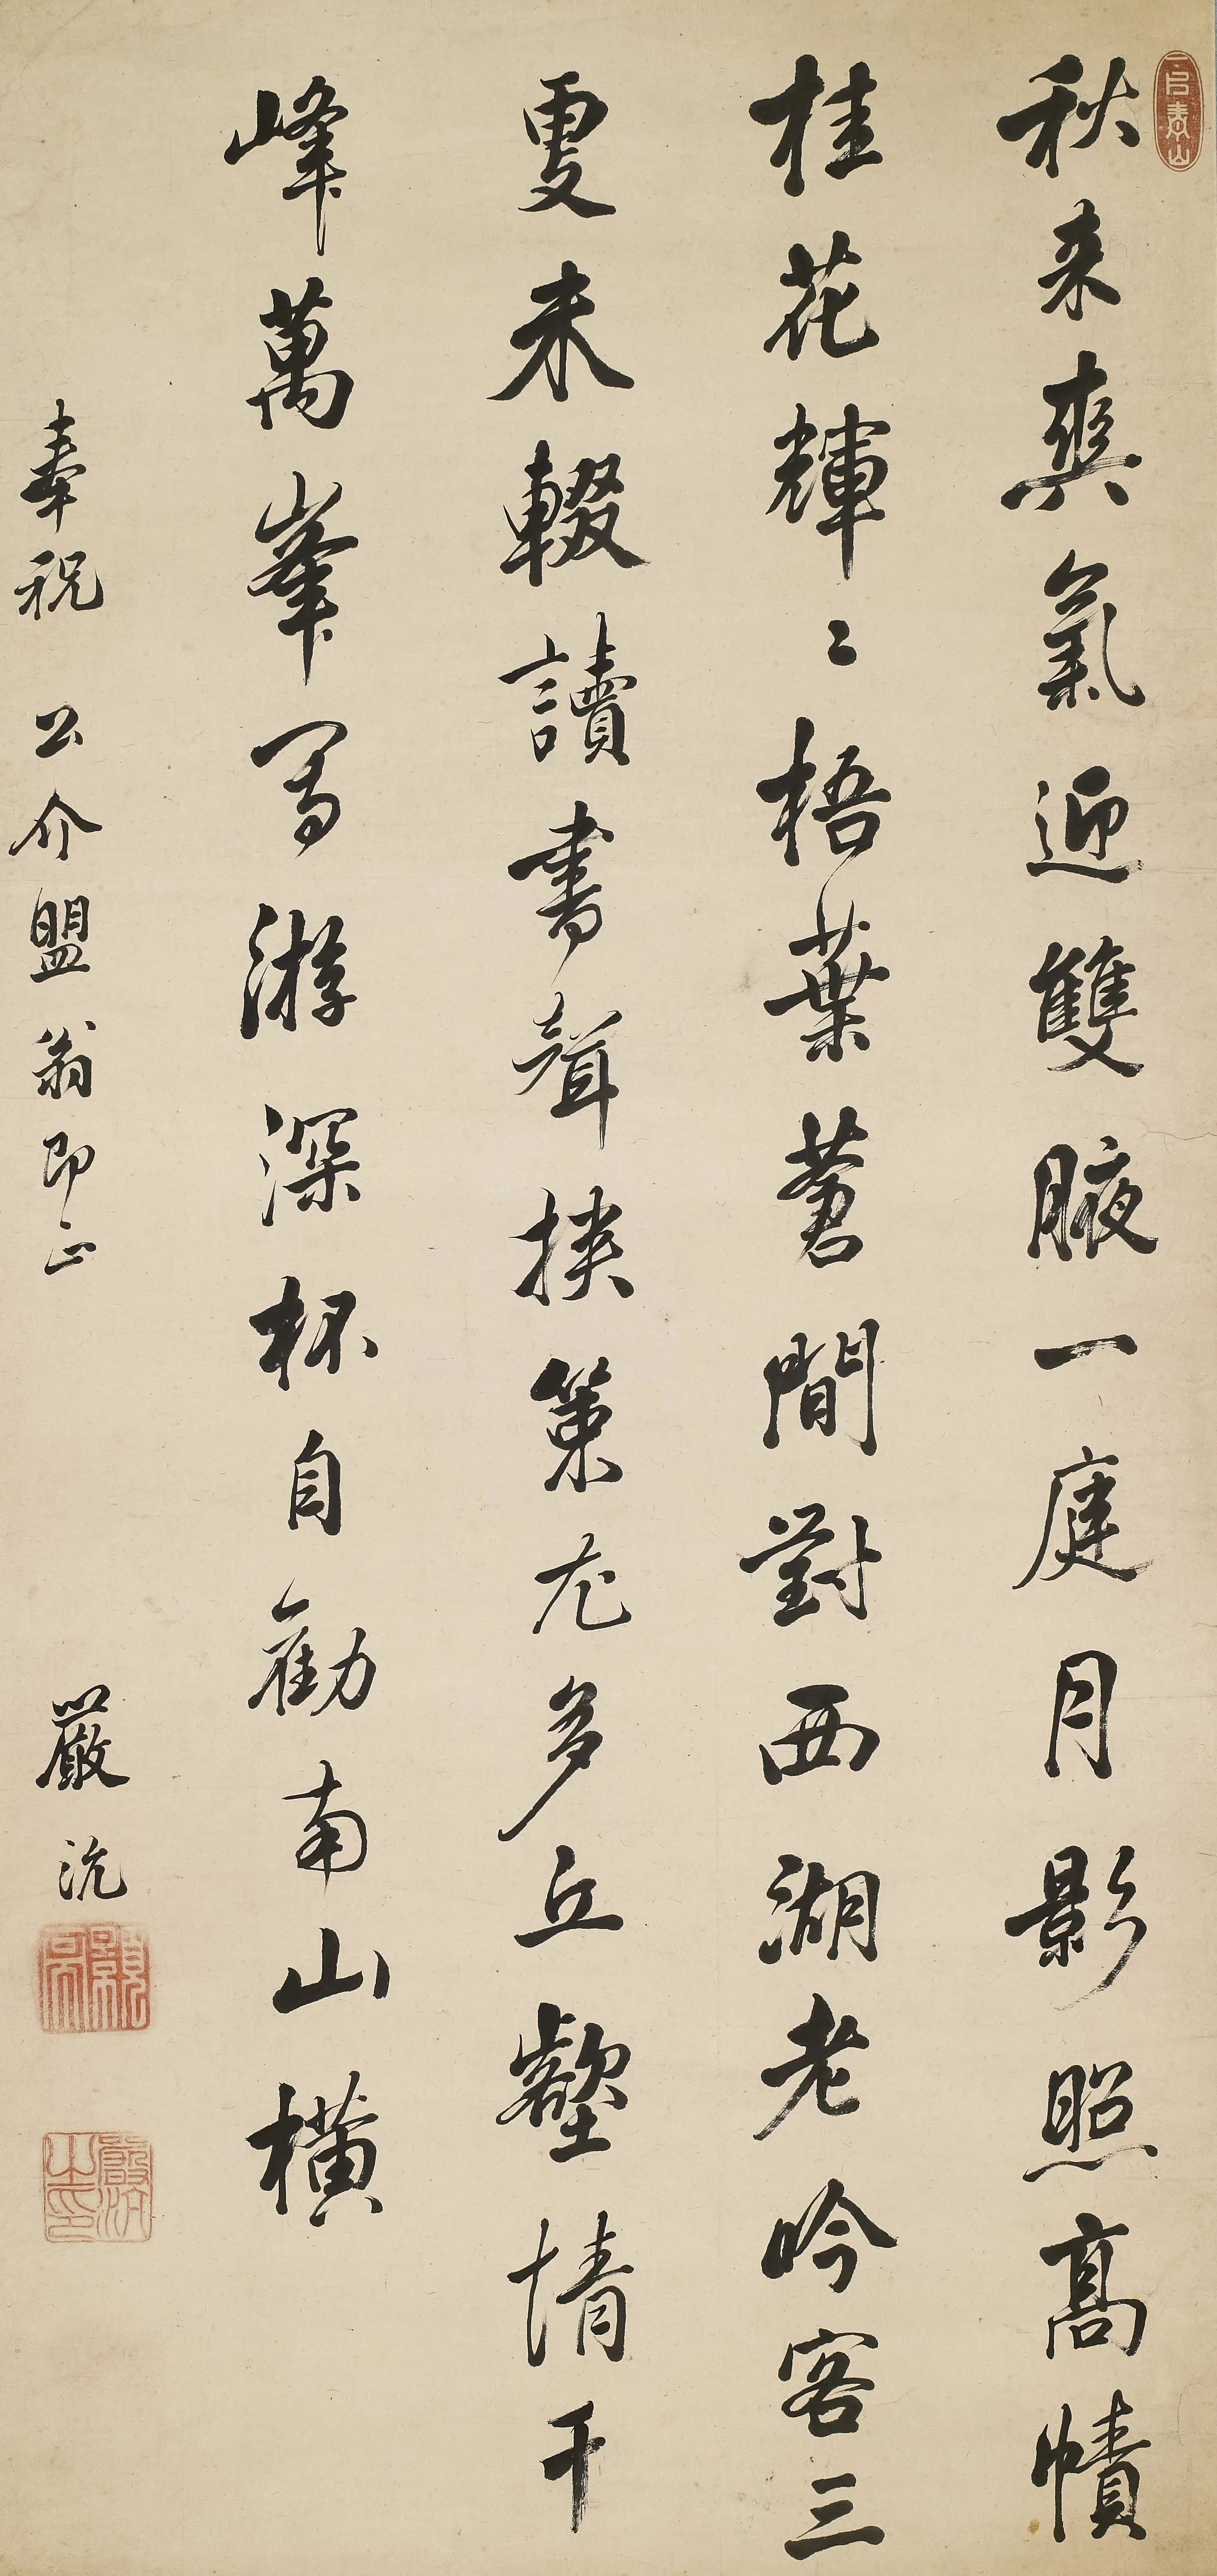 秋来爽氣迎雙腋一庭月影照高幘
桂花輝〻梧葉蒼間對西湖老吟客三
更未輟讀書聲挾策尤多丘壑情千
峰萬峯游深杯自勸南山橫
奉祝 公介盟翁即正
嚴沆
嚴沆之印